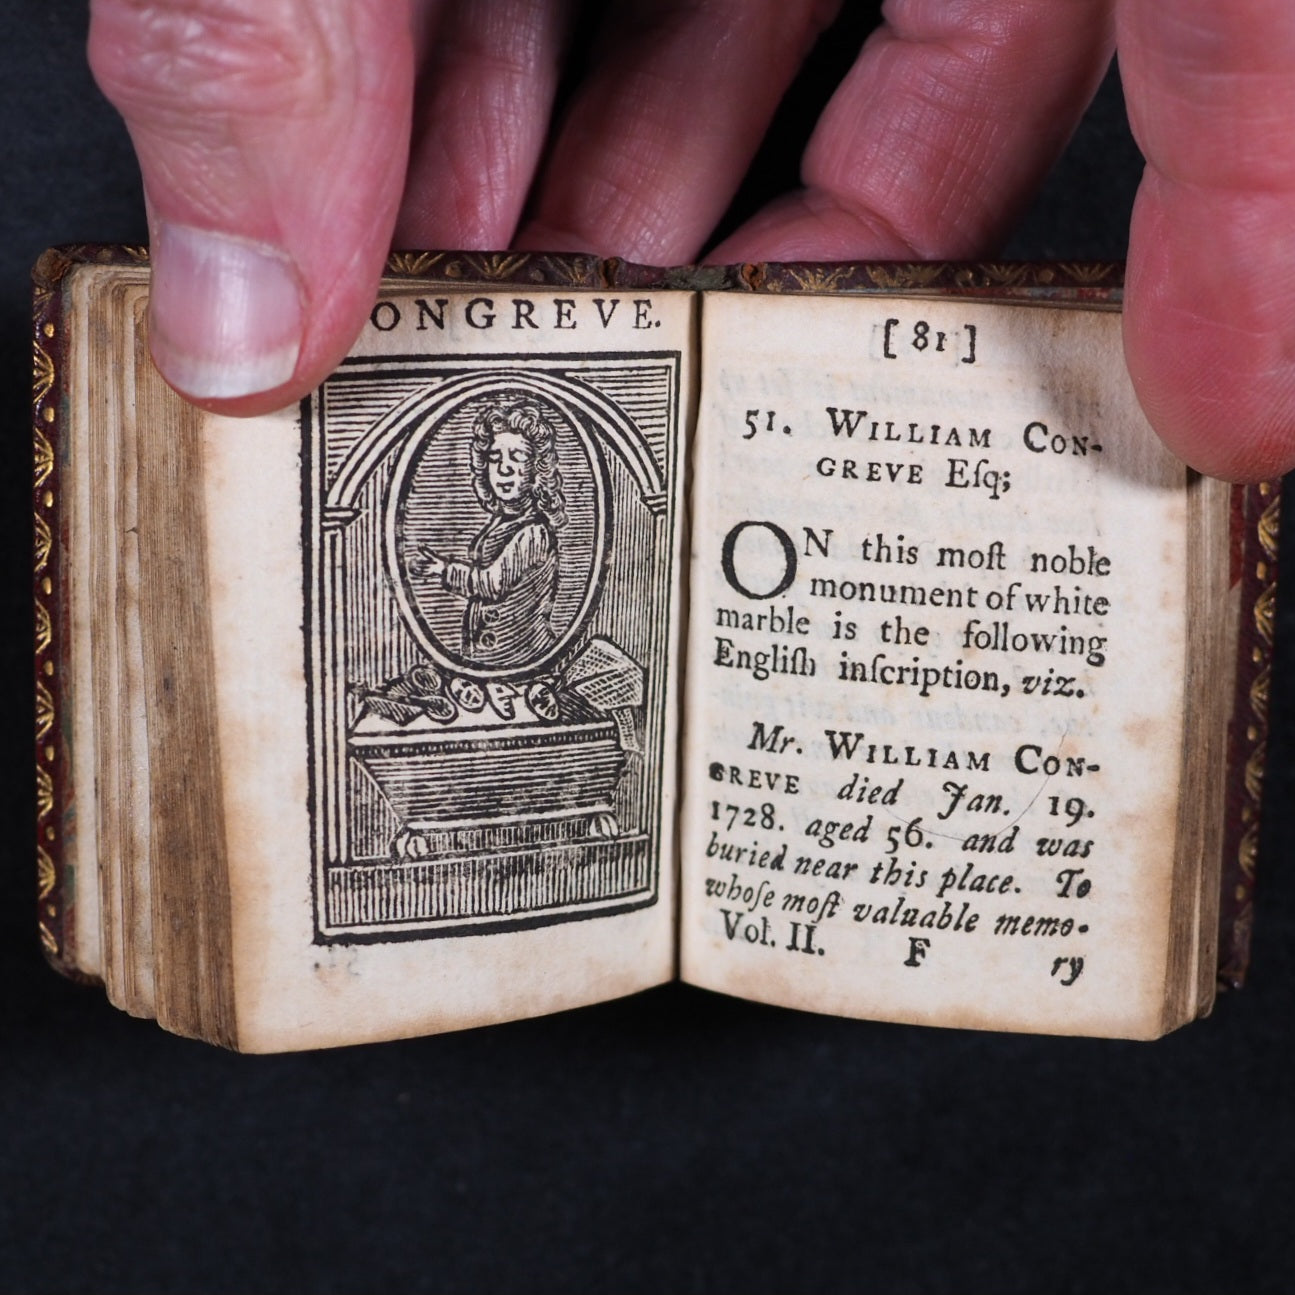 ONGREVE.
[ 81 ]
51. WILLIAM CON-
GREVE Eſq;
ON this moſt noble
monument of white
marble is the following
Engliſh inſcription, viz.
Mr. WILLIAM CON-
GREVE died Jan. 19.
1728. aged 56. and was
buried near this place. To
whoſe moſt valuable memo-
Vol. II. F ry